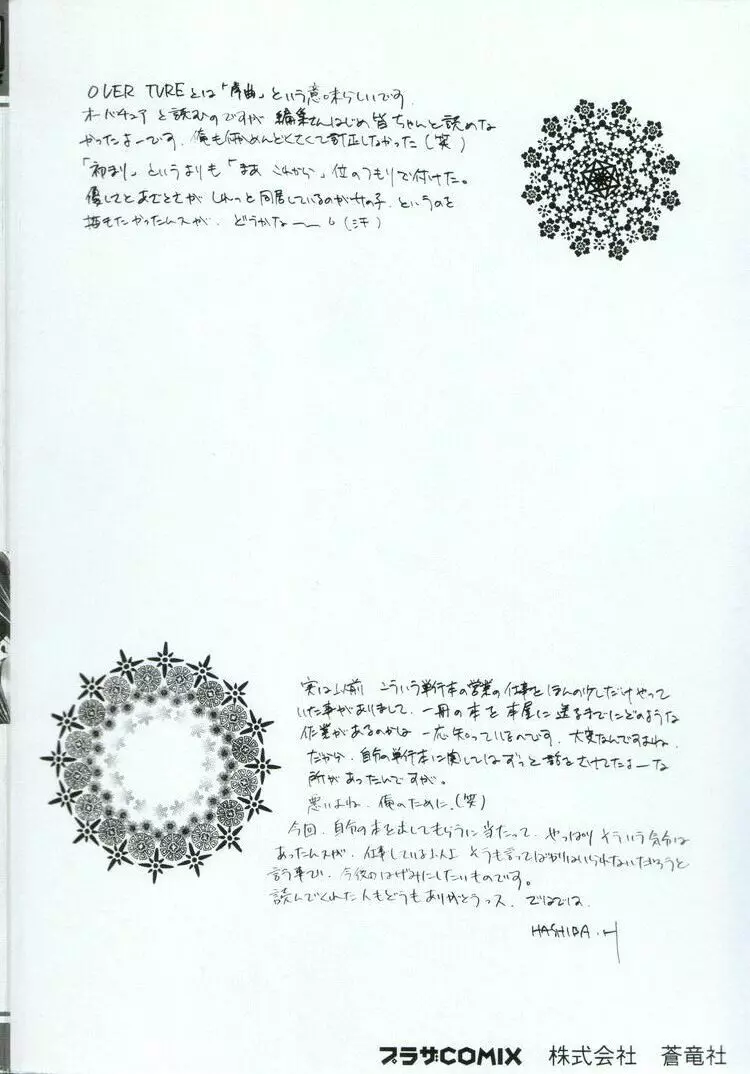 OVER TUREとは「序曲」という意味らしいです。
オーバチュアと読むのですが編集さんはじめ皆ちゃんと読めな
かったよーです。俺も何かめんどくさくて訂正しなかった(笑)
「初まり」というよりも「まあ これから」位のつもりで付けた。
しれっと同居しているのが女の子、というのを
描きたかったんスが、どうかなー(汗)
実は以前 こういう単行本の営業の仕事をほんの少しだけやって
いた事がありまして、一冊の本を本屋に送るまでにどのような
作業があるのかは 一応知っているのです。大変なんですよね。
だから、自分の単行本に関してはずっと避けてたよーな
所があったんですが。
悪いよね、俺のために。(笑)
今回、自分の本を出してもらうに当たって、やっぱりそういう気分は
あったんスが、仕事している以上 そうも言ってばかりはいられないだろうと
言う事で、今後のはげみにしたいものです。
読んでくれた人もどうもありがとうっス。ではでは。
HASHIBA.H
プラザCOMIX 株式会社 蒼竜社